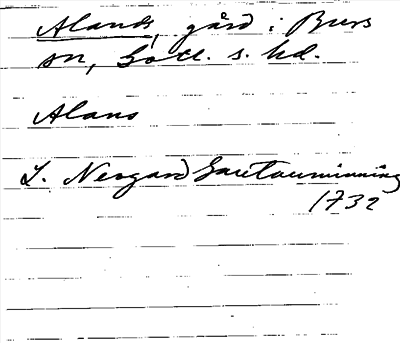 Alands, gård i Burs
sn, Gotl. s. hd.
Alans
L. Neogard Gautauminning
1732